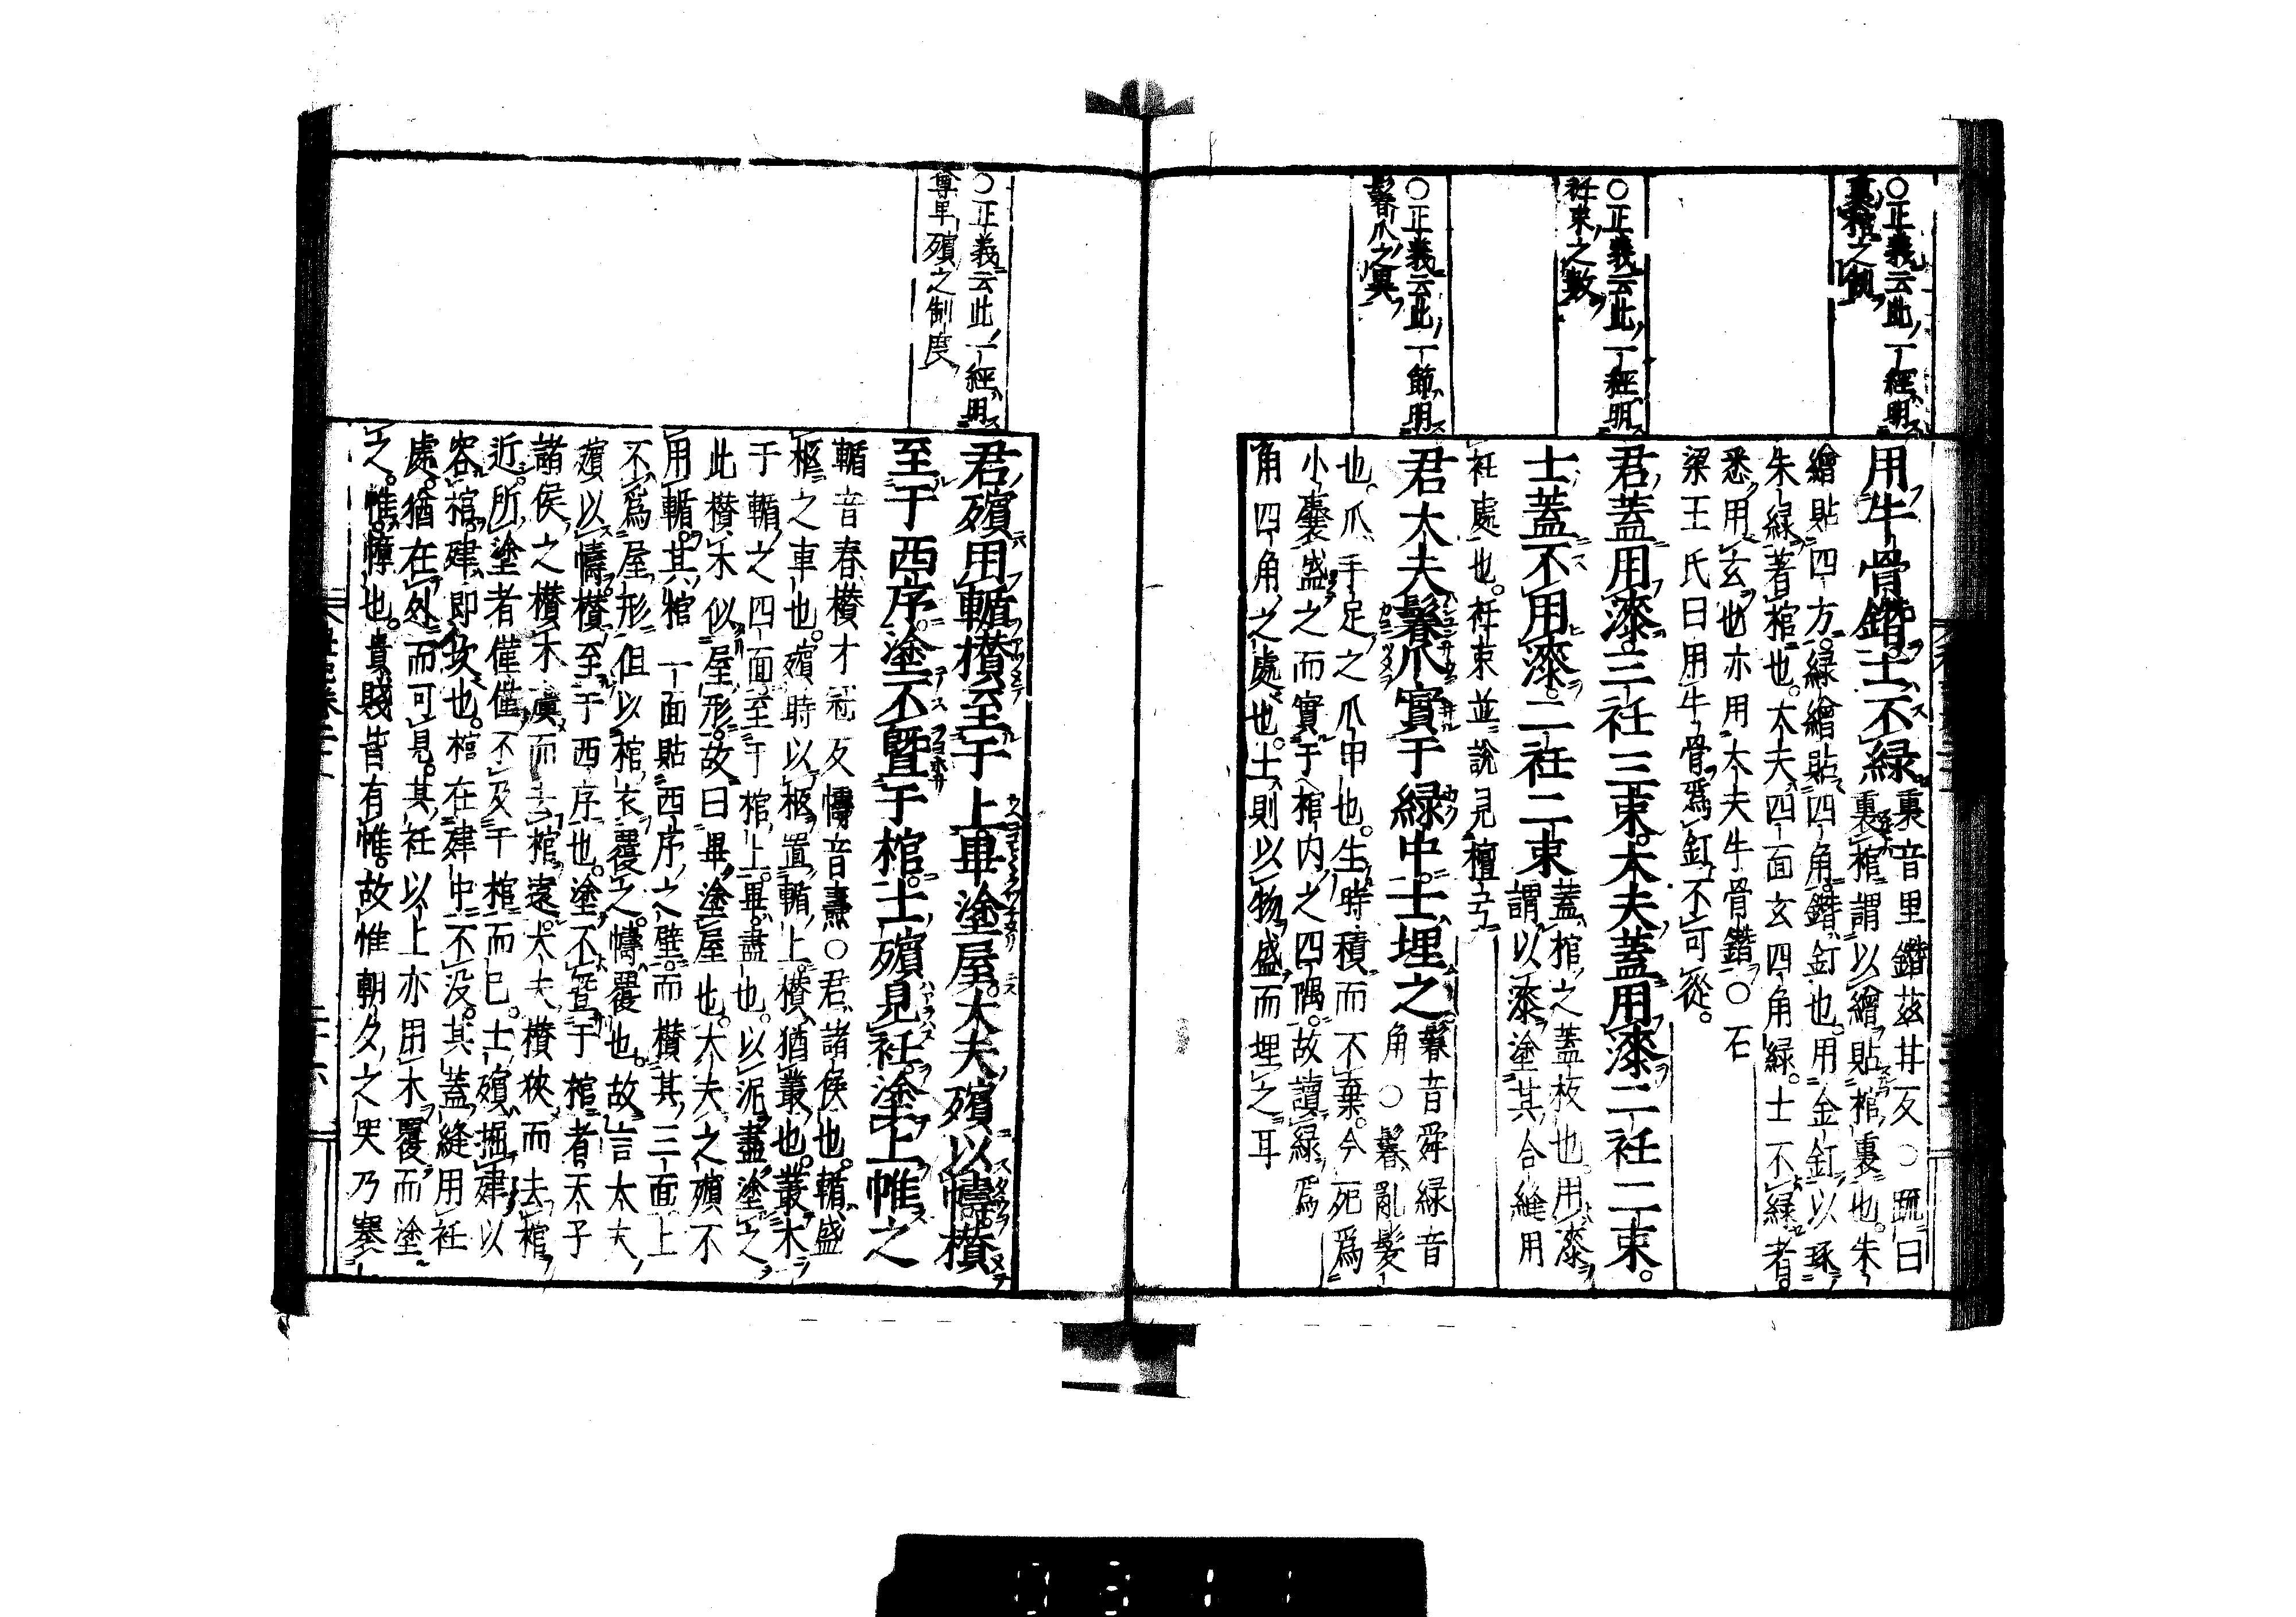 ○正義云此一經明
裏棺之制
用牛骨鐕士不綠裏音里鐕茲井反○疏曰
裏棺謂以繒貼棺裏也朱
繒貼四方綠繒貼四角鐕釘也用金釘以琢
朱綠著棺也大夫四面玄四角綠士不綠者
悉用玄也亦用大夫牛骨鐕○石
梁王氏曰用牛骨爲釘不可從
○正義云此一經明
衽束之數
君蓋用漆三衽三束大夫蓋用漆二衽二束
士蓋不用漆二衽二束蓋棺之蓋板也用漆
謂以漆塗其合縫用
衽處也衽束並說見檀弓
○正義云此一節明
鬊爪之異
君大夫鬊爪實于綠中士埋之鬊音舜綠音
角○鬊亂髮
也爪手足之爪甲也生時積而不棄今死爲
小囊盛之而實于棺内之四隅故讀綠爲
角四角之處也士則以物盛而埋之耳
○正義云此一經明
尊卑殯之制度
君殯用輴欑至于上畢塗屋大夫殯以幬欑
至于西序塗不曁于棺士殯見衽塗上帷之
輴音春欑才冠反幬音燾○君諸侯也輴盛
柩之車也殯時以柩置輴上欑猶叢也叢木
于輴之四面至于棺上畢盡也以泥盡塗之
此欑木似屋形故曰畢塗屋也大夫之殯不
用輴其棺一面貼西序之壁而欑其三面上
不爲屋形但以棺衣覆之幬覆也故言大夫
殯以幬欑至于西序也塗不曁于棺者天子
諸侯之欑木廣而去棺遠大夫欑狹而去棺
近所塗者僅僅不及于棺而已士殯掘肂以
容棺肂即坎也棺在肂中不没其蓋縫用衽
處猶在外而可見其衽以上亦用木覆而塗
之帷幛也貴賤皆有帷故惟朝夕之哭乃褰